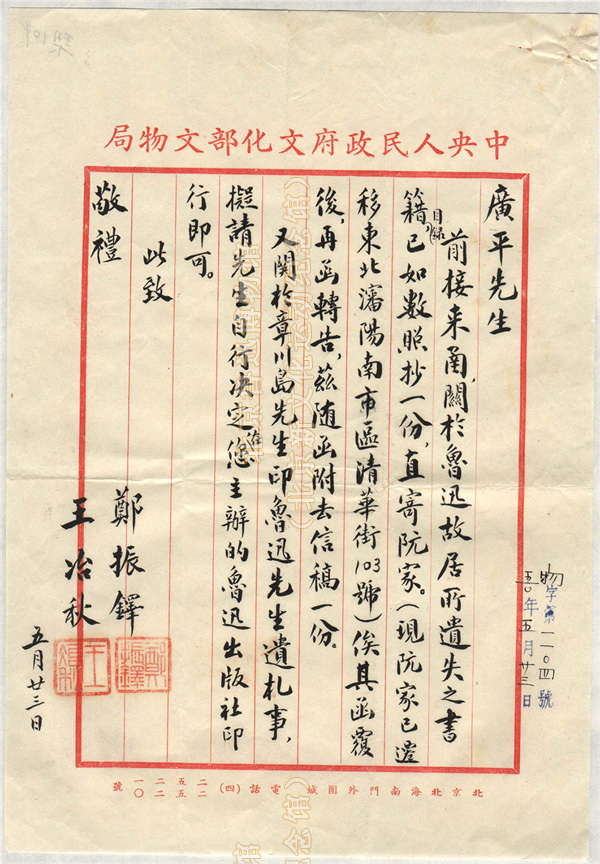 中央人民政府文化部文物局
廣平先生
前接来函，關於魯迅故居所遺失之書
籍目録，已如數照抄一份，直寄阮家。（現阮家已遷
移東北瀋陽南市區清華街103號）俟其函覆
後，再函轉告，兹随函附去信稿一份。
又関於章川島先生印魯迅先生遺札事，
擬請先生自行决定，在您主辦的魯迅出版社印
行即可。
此致
敬禮
鄭振鐸
王冶秋
五月廿三日
物字第一一〇四號
五〇年五月廿三日
北京北海南門外團城 電話（四）二二五五二二一〇號